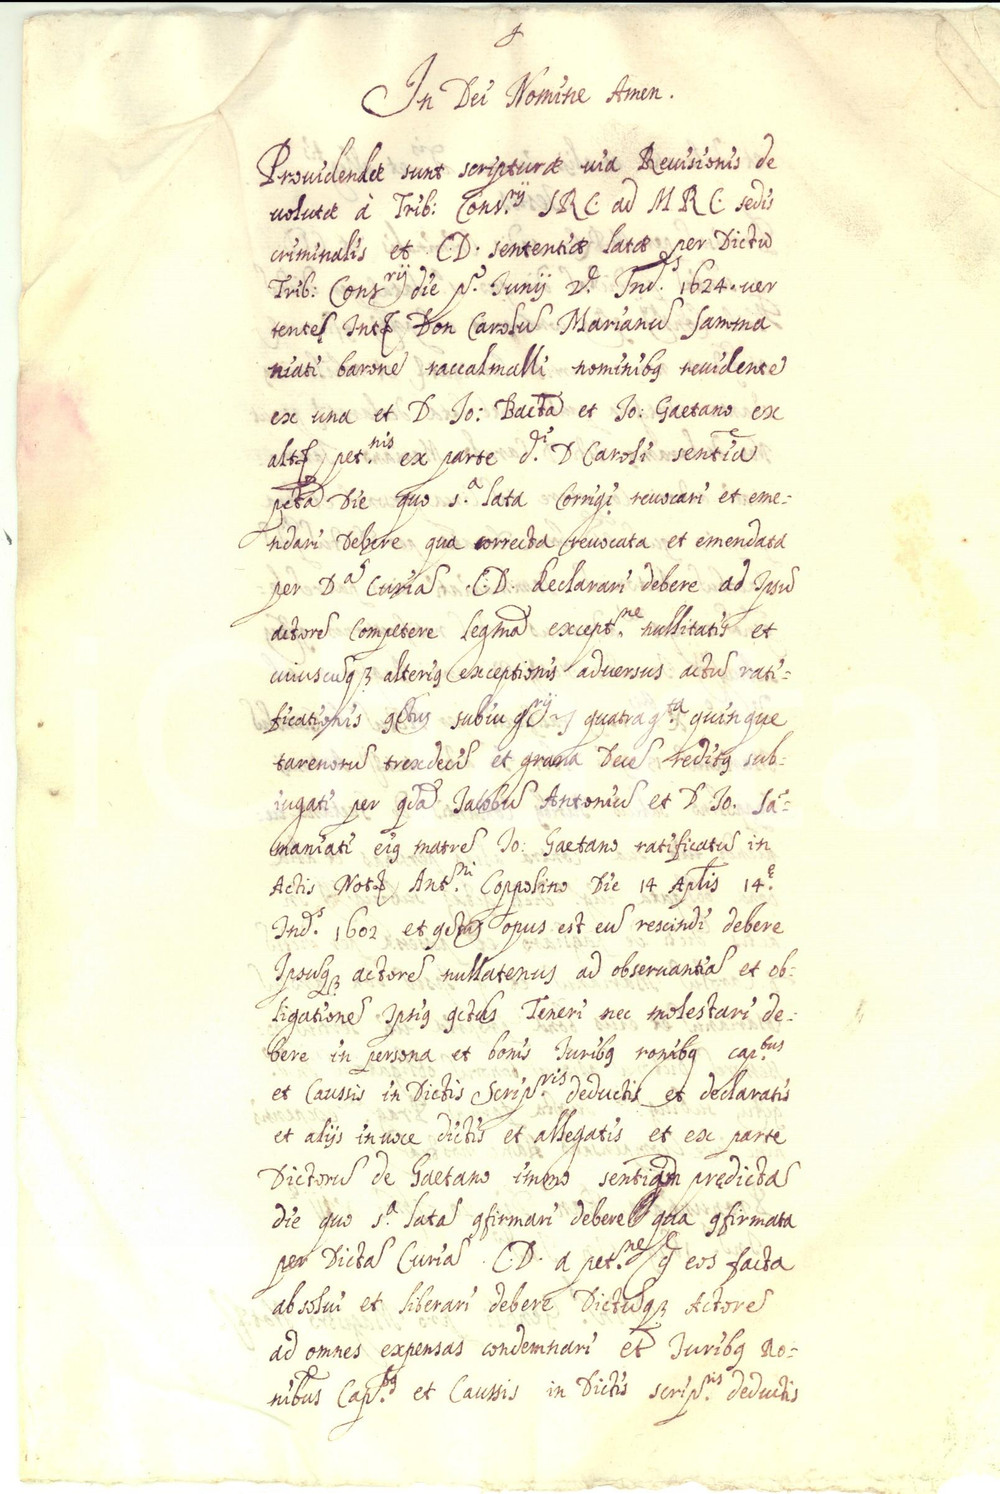 In Dei Nomine Amen.
Prouidendæ sunt scripturæ uia Reuisionis de
uolutæ à Trib: Cons.rij SRC. ad MRC. sedis
criminalis et C.D. sententiæ latæ per Dictũ
Trib: Consrij die p.º Iunij 2.ª Ind.s 1624. uer
tentes Intꝫ Don Carolũ Marianũ Samma
niati baronẽ raccalmalli nominibꝯ reuidentẽ
ex una et D Io: Bactã et Io: Gaetano ex
altꝫ pet.nis ex parte d.i D Caroli sentiã
pctã Die quo s.ª lata Corrigi reuocari et eme-
ndari Debere qua correcta reuocata et emendata
per Dãs Curiã C.D. declarari debere ad Ipsũ
actorẽ Competere legmã except.ne nullitatis et
cuiuscũqꝫ alteriꝯ exceptionis aduersus actũ rati-
ficationis ꝯctus subiu quatrag.ta quinque
tarenorũ trexdecĩ et grana Decẽ redditꝯ sub-
iugati per qdã Iacobũ Antoniũ et D Io. Sa-
maniati eiꝯ matrẽ Io: Gaetano ratificatũ in
Actis Notꝫ Ant.ni Coppolino Die 14 Aplis 14.ª
Ind.s 1602 et opus est eũ rescindi debere
Ipsũqꝫ actorẽ nullatenus ad obseruantiã et ob-
ligationẽ Ipsiꝯ ꝯctus Teneri nec molestari de-
bere in persona et bonis Iuribꝯ ronibꝯ cap.bus
et Caussis in Dictis Scrip.ris deductis et declaratis
et alijs inuoce dictis et allegatis et ex parte
Dictorũ de Gaetano immo sentiam prędictã
die quo s.ª latã ꝯfirmari debere qua ꝯfirmata
per Dictã Curiã C.D. a pet.ne ꝯ eos facta
absolui et liberari debere Dictũqꝫ Actorẽ
ad omnes expensas condemnari et Iuribꝯ Ro-
nibus Cap.bꝯ et Caussis in Dictis scrip.ris deductis